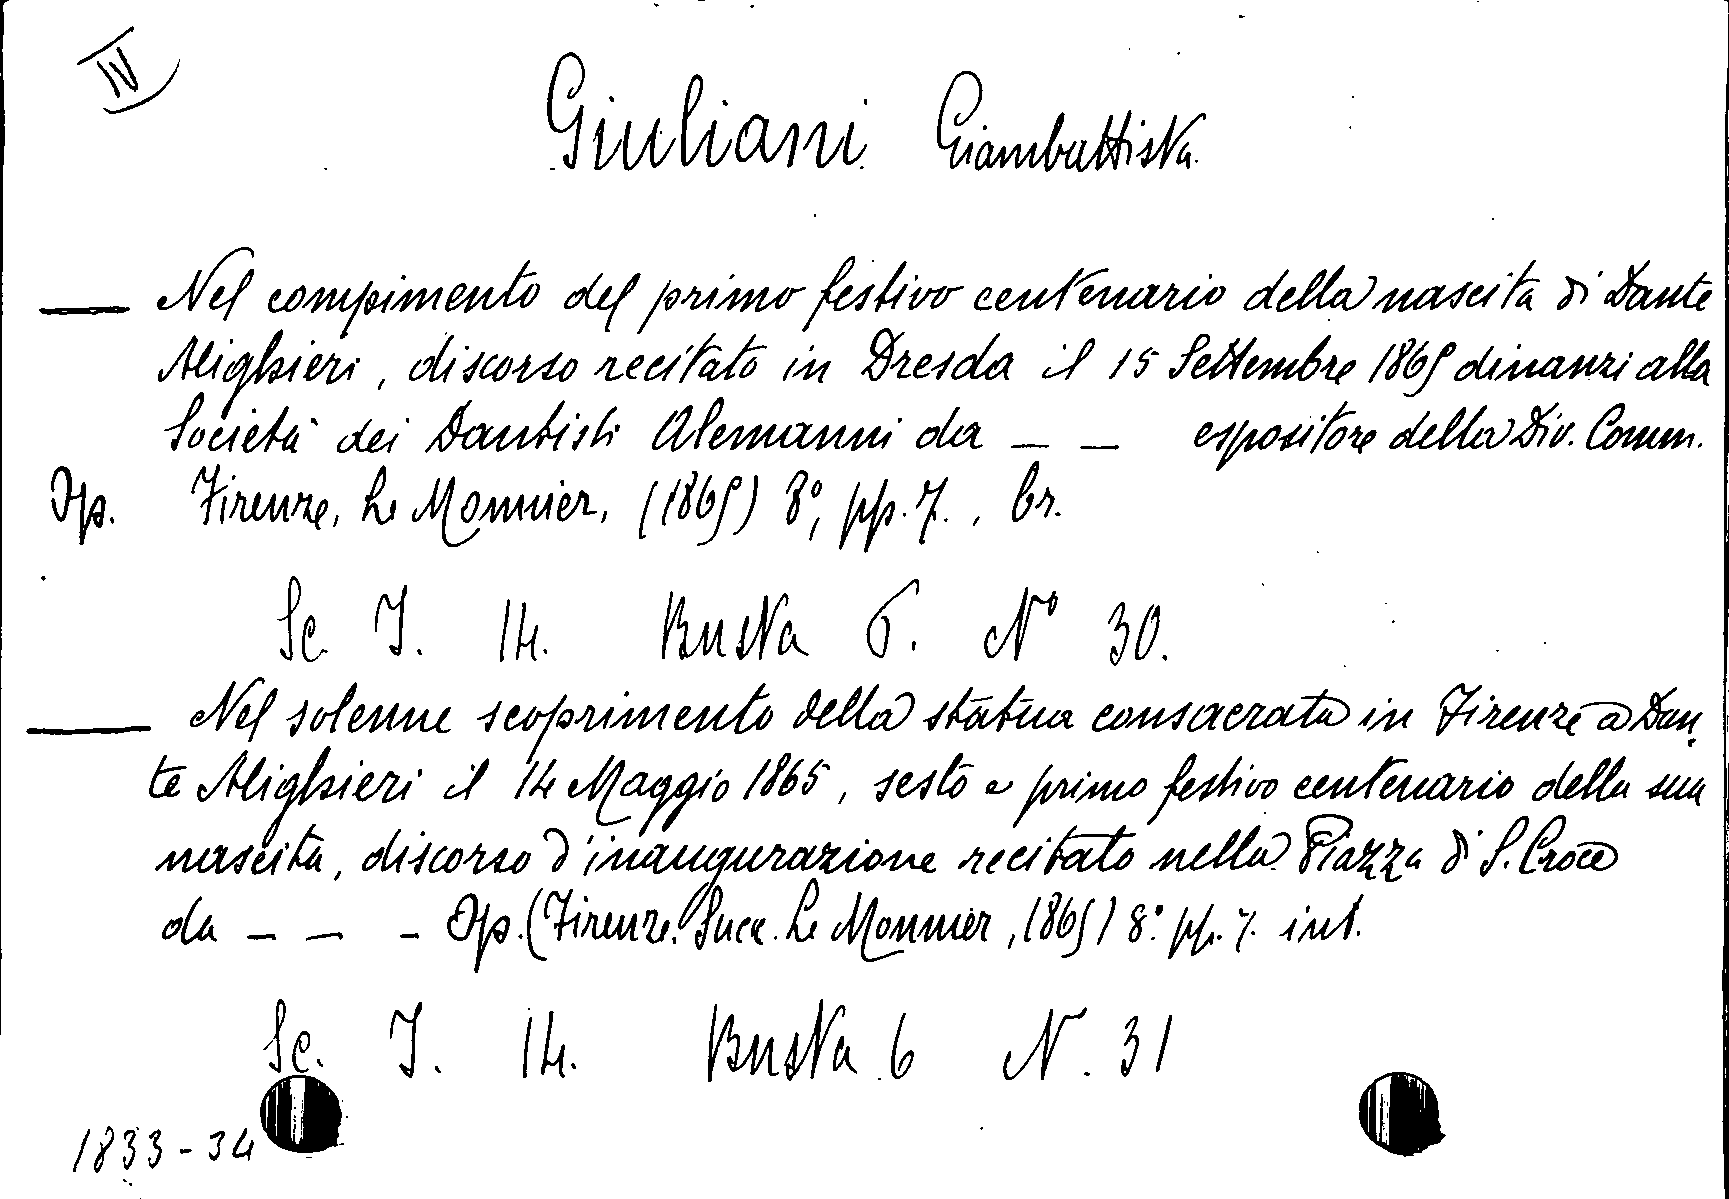 IV
Giuliani Giambattista
— Nel compimento del primo festivo centenario della nascita di Dante
Alighieri, discorso recitato in Dresda il 15 Settembre 1865 dinanzi alla
Società dei Dantisti Alemanni da — — espositore della Div. Comm.
Op. Firenze, Le Monnier, (1865) 8°, pp. 7., br.
Sc. I. 14. Busta 6. N° 30.
— Nel solenne scoprimento della statua consacrata in Firenze a Dan-
te Alighieri il 14 Maggio 1865, sesto e primo festivo centenario della sua
nascita, discorso d'inaugurazione recitato nella Piazza di S. Croce
da — — — Op. (Firenze. Succ. Le Monnier, 1865) 8°. pp. 7. int.
Sc. I. 14. Busta 6 N. 31
1833-34